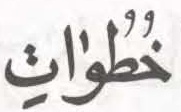 خُطُوٰاتِ